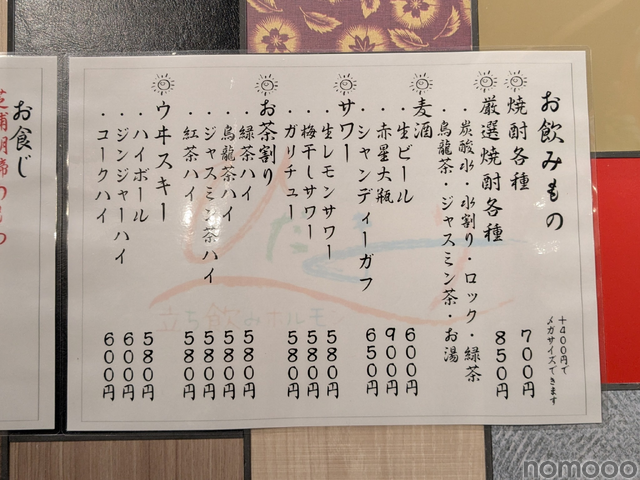 お飲みもの
+400円で
メガサイズできます
焼酎各種 700円
厳選焼酎各種 850円
・炭酸水・水割り・ロック・緑茶
・烏龍茶・ジャスミン茶・お湯
麦酒
・生ビール 600円
・赤星大瓶 900円
・シャンディーガフ 650円
サワー
・生レモンサワー 580円
・梅干しサワー 580円
・ガリチュー 580円
お茶割り
・緑茶ハイ 580円
・烏龍茶ハイ 580円
・ジャスミン茶ハイ 580円
・紅茶ハイ 580円
ウヰスキー
・ハイボール 580円
・ジンジャーハイ 600円
・コークハイ 600円
立ち飲みホルモン
お食じ
nomooo